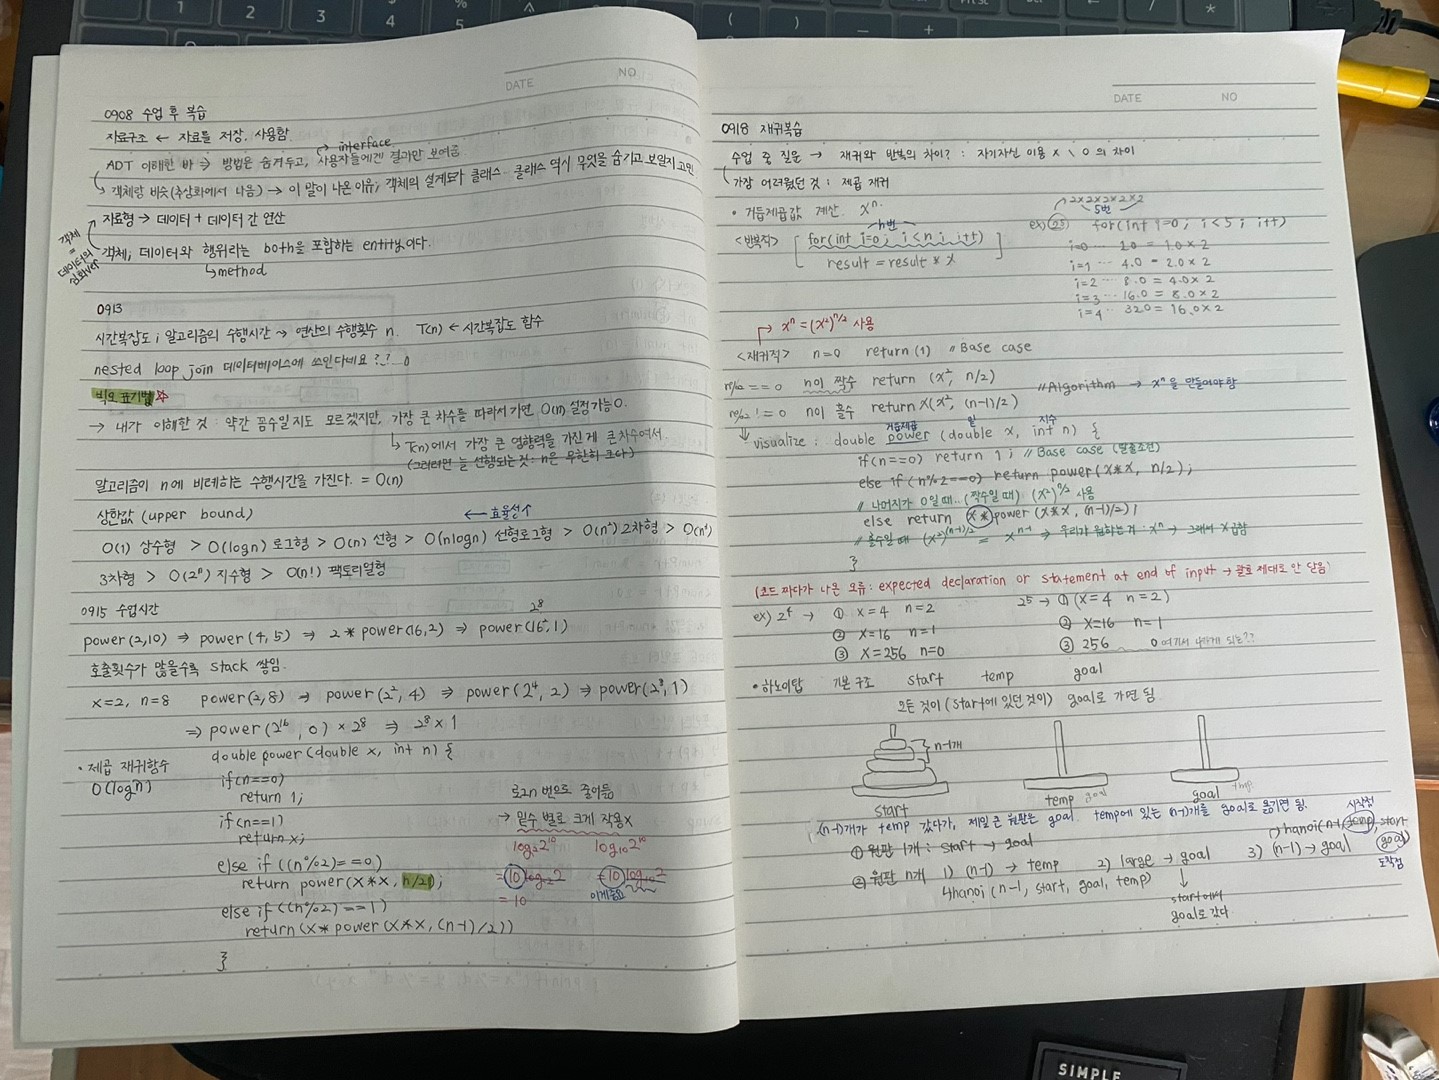 DATE NO.
0908 수업 후 복습
자료구조 ← 자료를 저장. 사용함.
→ interface
ADT 이해한 바 ⇒ 방법은 숨겨두고, 사용자들에겐 결과만 보여줌.
객체랑 비슷(추상화에서 나옴) → 이 말이 나온 이유; 객체의 설계도가 클래스. 클래스 역시 무엇을 숨기고 보일지 고민
자료형 → 데이터 + 데이터 간 연산
객체
=
데이터의
심화ver
객체; 데이터와 행위라는 both을 포함하는 entity이다.
↳ method
0913
시간복잡도 ; 알고리즘의 수행시간 → 연산의 수행횟수 n. T(n) ← 시간복잡도 함수
nested loop join 데이터베이스에 쓰인다네요 ?.?
빅오 표기법
→ 내가 이해한 것 : 약간 꼼수일지도 모르겠지만, 가장 큰 차수를 따라서 가면 O(n) 설정가능
↳ T(n)에서 가장 큰 영향력을 가진 게 큰 차수여서
(그러려면 늘 선행되는 것 : n은 무한히 크다)
알고리즘이 n에 비례하는 수행시간을 가진다. = O(n)
상한값 (upper bound) ← 효율성↑
O(1) 상수형 > O(logn) 로그형 > O(n) 선형 > O(nlogn) 선형로그형 > O(n²) 2차형 > O(n³)
3차형 > O(2ⁿ) 지수형 > O(n!) 팩토리얼형
0915 수업시간
2⁸
power(2,10) ⇒ power(4,5) ⇒ 2 * power(16,2) ⇒ power(16²,1)
호출횟수가 많을수록 stack 쌓임.
x=2, n=8 power(2,8) ⇒ power(2²,4) ⇒ power(2⁴,2) ⇒ power(2⁸,1)
⇒ power(2¹⁶, 0) × 2⁸ ⇒ 2⁸ × 1
• 제곱 재귀함수 double power(double x, int n) {
O(logn)
if(n==0)
return 1;
if(n==1)
return x;
else if ((n%2)==0)
return power(x*x, n/2);
else if ((n%2)==1)
return (x* power(x*x, (n-1)/2))
}
로그n 번으로 줄어듦
→ 밑수 별로 크게 작용x
log₂2¹⁰ log₁₀2¹⁰
=10 log₂2 =10 log₁₀2
= 10 이게중요
DATE NO
0918 재귀복습
수업 중 질문 → 재귀와 반복의 차이? : 자기자신 이용 x \ o 의 차이
가장 어려웠던 것 : 제곱 재귀
• 거듭제곱값 계산. xⁿ.
2×2×2×2×2
5번
n번
<반복적> for(int i=0; i<n; i++)
result = result * x
ex) 2⁵ for(int i=0; i<5; i++)
i=0 ... 2.0 = 1.0×2
i=1 ... 4.0 = 2.0×2
i=2 ... 8.0 = 4.0×2
i=3 ... 16.0 = 8.0×2
i=4 ... 32.0 = 16.0×2
→ xⁿ = (x²)^(n/2) 사용
<재귀적> n=0 return (1) // Base case
n%2 == 0 n이 짝수 return (x², n/2)
n%2 != 0 n이 홀수 return x(x², (n-1)/2)
//Algorithm → xⁿ을 만들어야함
거듭제곱 밑 지수
visualize : double power (double x, int n) {
if(n==0) return 1; // Base case (탈출조건)
else if (n%2==0) return power(x*x, n/2);
// 나머지가 0일 때.. (짝수일 때) (x²)^(n/2) 사용
else return x* power (x*x, (n-1)/2);
// 홀수일 때 (x²)^((n-1)/2) = xⁿ⁻¹ ⇒ 우리가 원하는 거 : xⁿ → 그래서 x곱함
}
(코드 짜다가 나온 오류 : expected declaration or statement at end of input → 괄호 제대로 안 닫음)
ex) 2⁴ → ① x=4 n=2
② x=16 n=1
③ x=256 n=0
2⁵ → ① (x=4 n=2)
② x=16 n=1
③ 256 0 여기서
• 하노이탑 기본 구조 start temp goal
모든 것이 (start에 있던 것이) goal로 가면 됨.
n-1개
start temp goal goal tmp
(n-1)개가 temp 갔다가, 제일 큰 원판은 goal. temp에 있는 (n-1)개를 goal로 옮기면 됨.
① 원판 1개 : start → goal
② 원판 n개 1) (n-1) → temp 2) large → goal 3) (n-1) → goal
↳ hanoi (n-1, start, goal, temp)
start에서
goal로 갔다.
시작점
hanoi(n-1, temp, start
goal)
도착점
SIMPLE